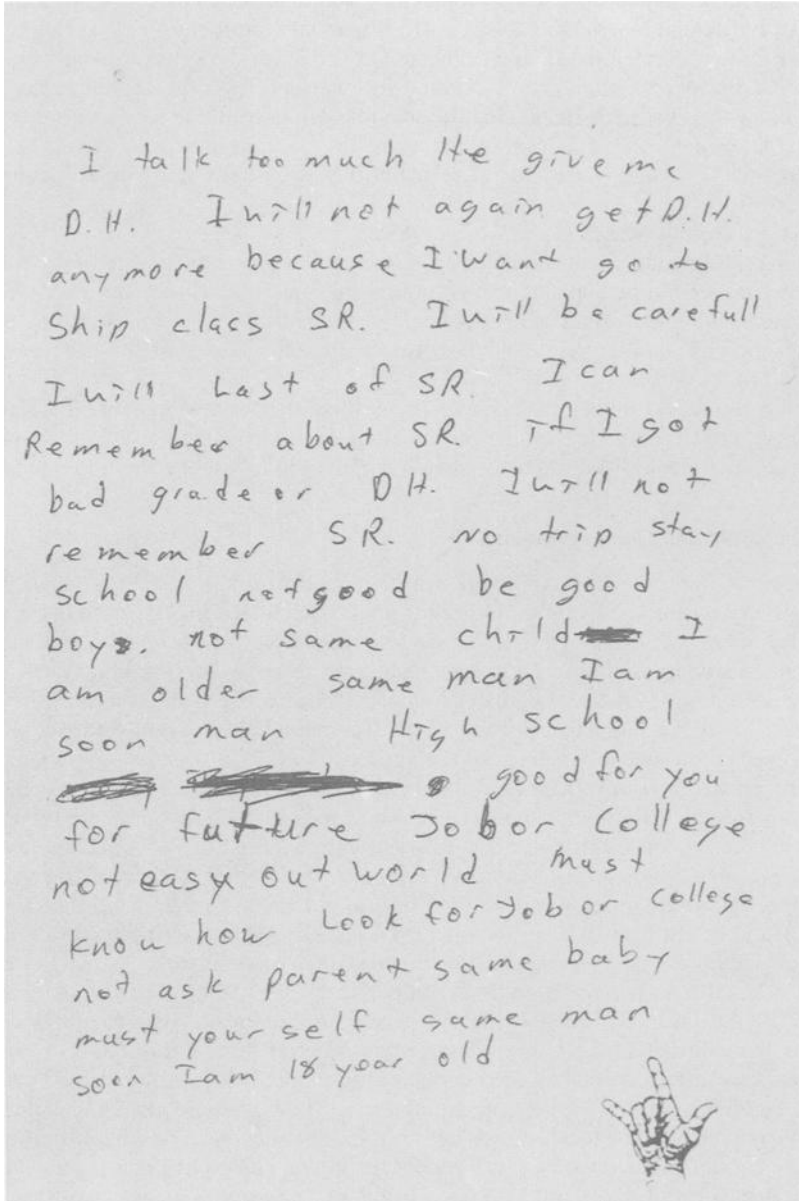 I talk too much He give me
D.H. I will not again get D.H.
anymore because I want go to
Ship class SR. I will be carefull
I will Last of SR. I can
Remember about SR. if I got
bad grade or DH. I will not
remember SR. No trip stay
school not good be good
boy. not same child I
am older same man I am
soon man High school
good for you
for future Job or College
not easy out world must
know how Look for Job or college
not ask parent same baby
must your self same man
soon I am 18 year old